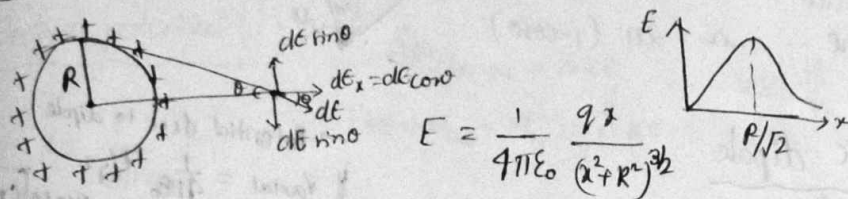 + + + + + + + + + + + + + + +
R
θ
dE sinθ
dEₓ = dE cosθ
θ
dE
dE sinθ
E = 1/4πε₀ qx/(x²+R²)^3/2
E
R/√2
x